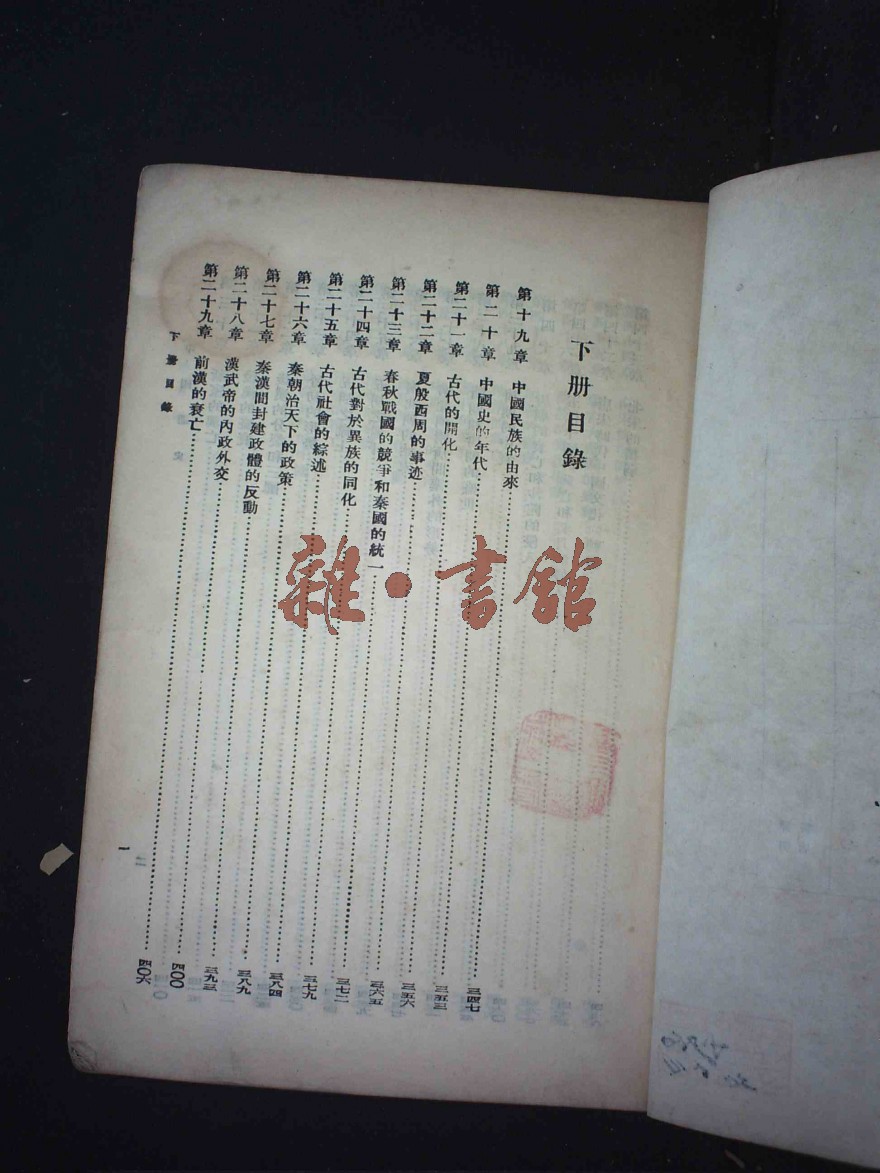 下册目錄
第十九章 中國民族的由來……三四七
第二十章 中國史的年代……三五三
第二十一章 古代的開化……三五六
第二十二章 夏殷西周的事迹……三六五
第二十三章 春秋戰國的競爭和秦國的統一……三七二
第二十四章 古代對於異族的同化……三七九
第二十五章 古代社會的綜述……三八四
第二十六章 秦朝治天下的政策……三八九
第二十七章 秦漢間封建政體的反動……三九三
第二十八章 漢武帝的內政外交……四〇〇
第二十九章 前漢的衰亡……四〇六
下册目錄
一
雜·書館